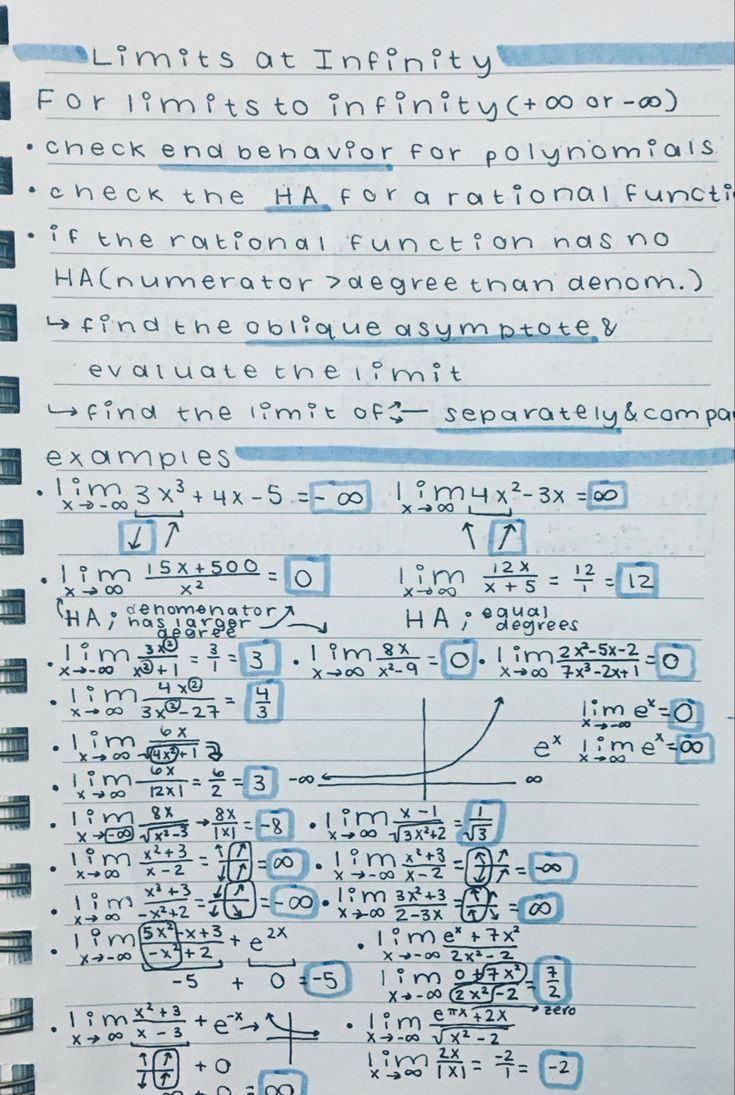 Limits at Infinity
For limits to infinity (+∞ or -∞)
• check end behavior for polynomials
• check the HA for a rational functi
• if the rational function has no
HA (numerator > degree than denom.)
↳ find the oblique asymptote &
evaluate the limit
↳ find the limit of separately & compa
examples
• lim x→-∞ 3x³ + 4x - 5 = -∞ lim x→∞ 4x² - 3x = ∞
↓ ↗ ↖ ↗
• lim x→∞ (15x + 500)/x² = 0 lim x→∞ 12x/(x + 5) = 12/1 = 12
HA; denomenator has larger degree HA; equal degrees
• lim x→-∞ 3x²/(x² + 1) = 3/1 = 3 • lim x→∞ 8x/(x² - 9) = 0 • lim x→∞ (2x² - 5x - 2)/(7x³ - 2x + 1) = 0
• lim x→∞ 4x²/(3x² - 27) = 4/3 lim x→-∞ eˣ = 0
• lim x→∞ 6x/√(4x² + 1) eˣ lim x→∞ eˣ = ∞
• lim x→∞ 6x/|2x| = 6/2 = 3 -∞ ∞
• lim x→-∞ 8x/√(x² - 3) → 8x/|x| = -8 • lim x→∞ (x - 1)/√(3x² + 2) = 1/√3
• lim x→∞ (x² + 3)/(x - 2) = ↑↑/↓↑ = ∞ • lim x→-∞ (x² + 3)/(x - 2) = ↑↑/↓↑ = -∞
• lim x→∞ (x³ + 3)/(-x² + 2) = ↓↑/↓↓ = -∞ • lim x→-∞ (3x² + 3)/(2 - 3x) = ↑↑/↑↓ = ∞
• lim x→-∞ (5x² - x + 3)/(-x² + 2) + e²ˣ • lim x→-∞ (eˣ + 7x²)/(2x² - 2)
-5 + 0 = -5 lim x→-∞ (0 + 7x²)/(2x² - 2) = 7/2
• lim x→∞ (x² + 3)/(x - 3) + e⁻ˣ → • lim x→-∞ (e^πx + 2x)/√(x² - 2) → zero
↑↑/↓↑ + 0 lim x→-∞ 2x/|x| = -2/1 = -2
∞ + 0 = ∞